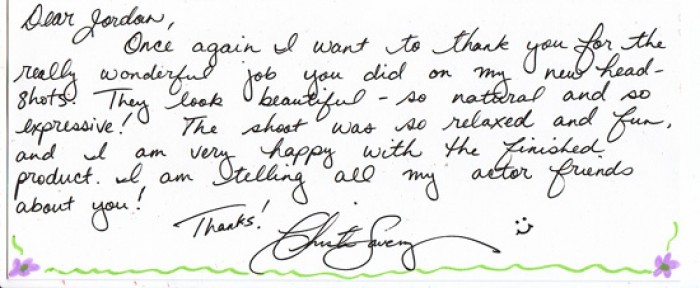 Dear Jordan,
Once again I want to thank you for the
really wonderful job you did on my new head-
shots. They look beautiful - so natural and so
expressive! The shoot was so relaxed and fun,
and I am very happy with the finished
product. I am telling all my actor friends
about you!
Thanks!